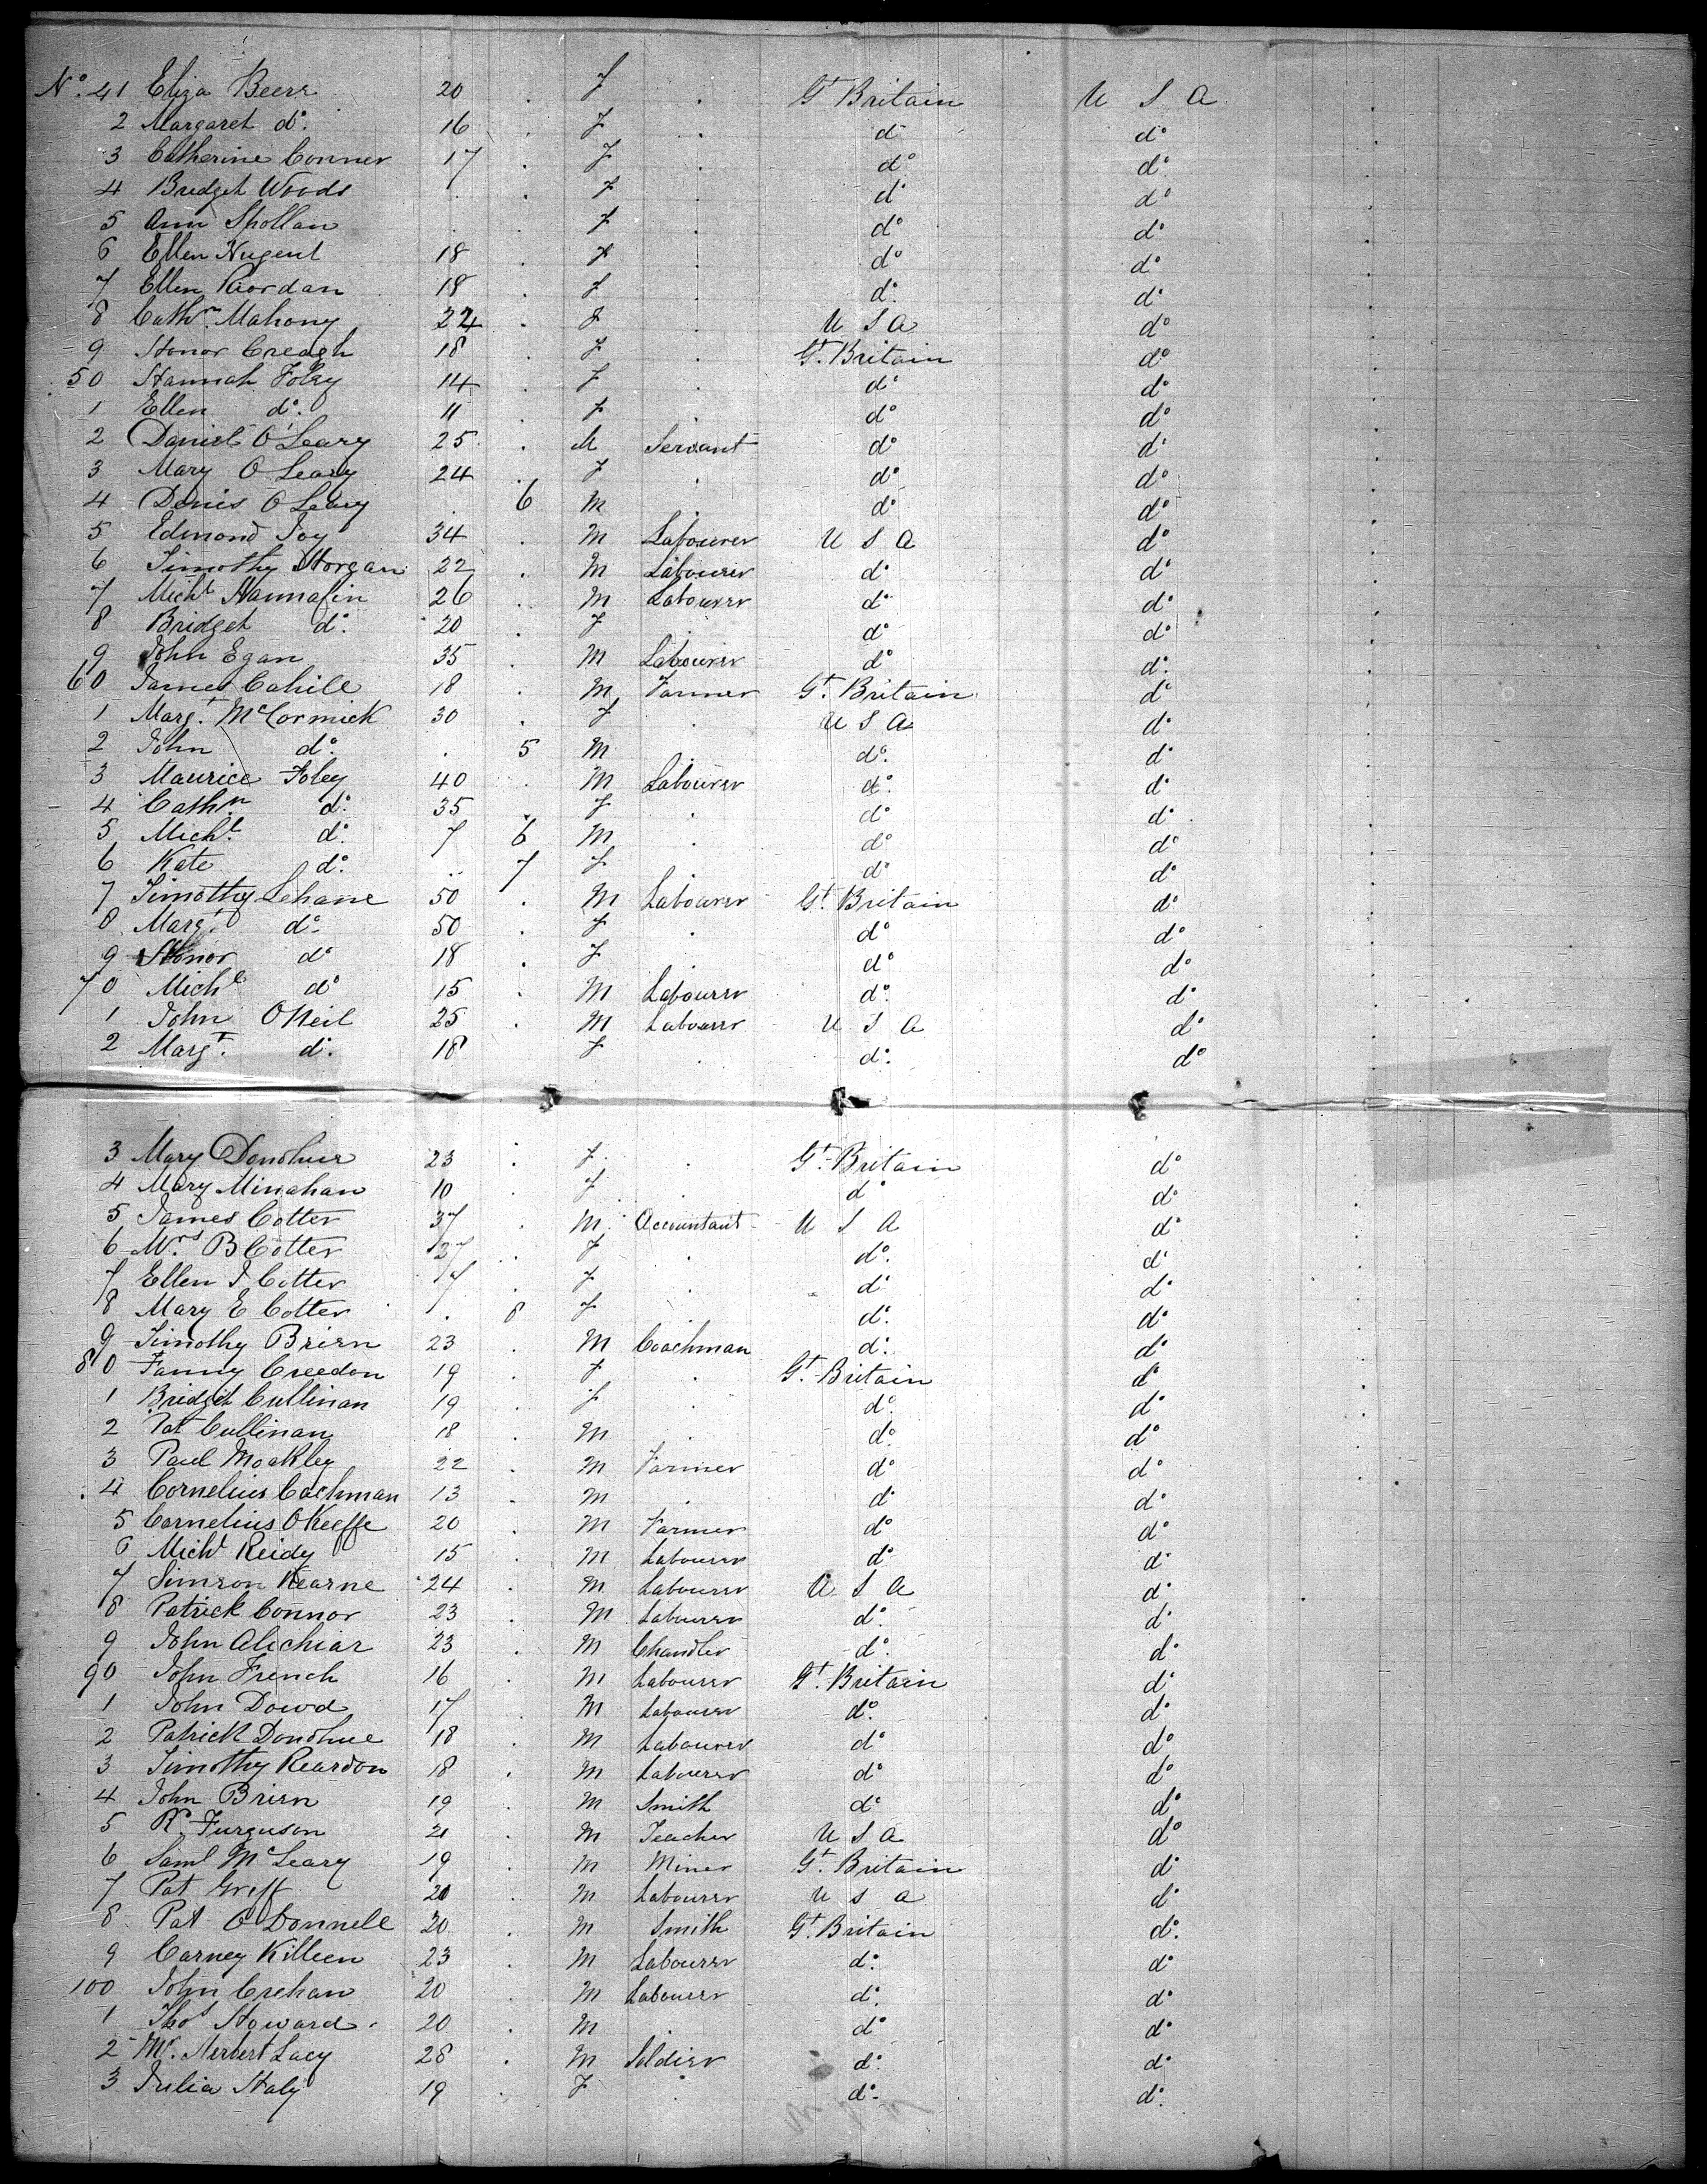 No. 41 Eliza Beers 20 . f . Gt Britain U S A
2 Margaret do. 16 . f . do do
3 Catherine Conner 17 . f . do do
4 Bridget Woods . . f . do do
5 Ann Spollan . . f . do do
6 Ellen Nugent 18 . f . do do
7 Ellen Riordan 18 . f . do do
8 Cathn. Mahony 22 . f . U S A do
9 Honor Creagh 18 . f . Gt. Britain do
50 Hannah Foley 14 . f . do do
1 Ellen do. 11 . f . do do
2 Daniel O'Leary 25 . M Servant do do
3 Mary O Leary 24 . f . do do
4 Denis O Leary . 6 M . do do
5 Edmond Joy 34 . M Labourer U S A do
6 Timothy Horgan 22 . M Labourer do do
7 Michl Hannafin 26 . M Labourer do do
8 Bridget do. 20 . f . do do
9 John Egan 35 . M Labourer do do
60 James Cahill 18 . M Farmer Gt. Britain do
1 Margt. McCormick 30 . f . U S A do
2 John do. . 5 M . do. do
3 Maurice Foley 40 . M Labourer do. do
4 Cathn do. 35 . f . do do
5 Michl. do. 7 6 M . do do
6 Kate do. . 7 f . do do
7 Timothy Lehane 50 . M Labourer Gt. Britain do
8 Margt. do. 50 . f . do do
9 Honor do 18 . f . do do
70 Michl do 15 . M Labourer do. do
1 John O Neil 25 . M Labourer U S A do
2 Margt. do. 18 f . do. do
3 Mary Donohue 23 . f . Gt. Britain do
4 Mary Minahan 10 . f . do do
5 James Cotter 37 . M. Accountant U S A do
6 Mrs B Cotter 27 . f . do. do
7 Ellen J Cotter 7 . f . do do
8 Mary E Cotter . 8 f . do. do
9 Timothy Brien 23 . M Coachman do. do
80 Fanny Creedon 19 . f . Gt. Britain do
1 Bridget Cullinan 19 . f . do. do
2 Pat Cullinan 18 . M . do. do
3 Paul Moakley 22 . M Farmer do do
4 Cornelius Cachman 13 . M . do do
5 Cornelius OKeeffe 20 . M Farmer do do
6 Michl Reidy 15 . M Labourer do do
7 Simson Kearne 24 . M Labourer U S A do
8 Patrick Connor 23 . M Labourer do. do
9 John Alichiar 23 . M Chandler do. do
90 John French 16 . M Labourer Gt. Britain do
1 John Dowd 17 . M Labourer do. do
2 Patrick Donohue 18 . M Labourer do do
3 Timothy Reardon 18 . M Labourer do do
4 John Brien 19 . M Smith do do
5 R. Furguson 21 . M Teacher U S A do
6 Saml McLeary 19 . M Miner Gt. Britain do
7 Pat Greff 20 . M Labourer U S A do
8 Pat O Donnell 20 . M Smith Gt Britain do.
9 Carney Killeen 23 . M Labourer do. do
100 John Crehan 20 . M Labourer do. do
1 Thos Howard 20 . M . do do
2 Mr. Herbert Lacy 28 . M Soldier do. do
3 Julia Haly 19 . f . do. do.